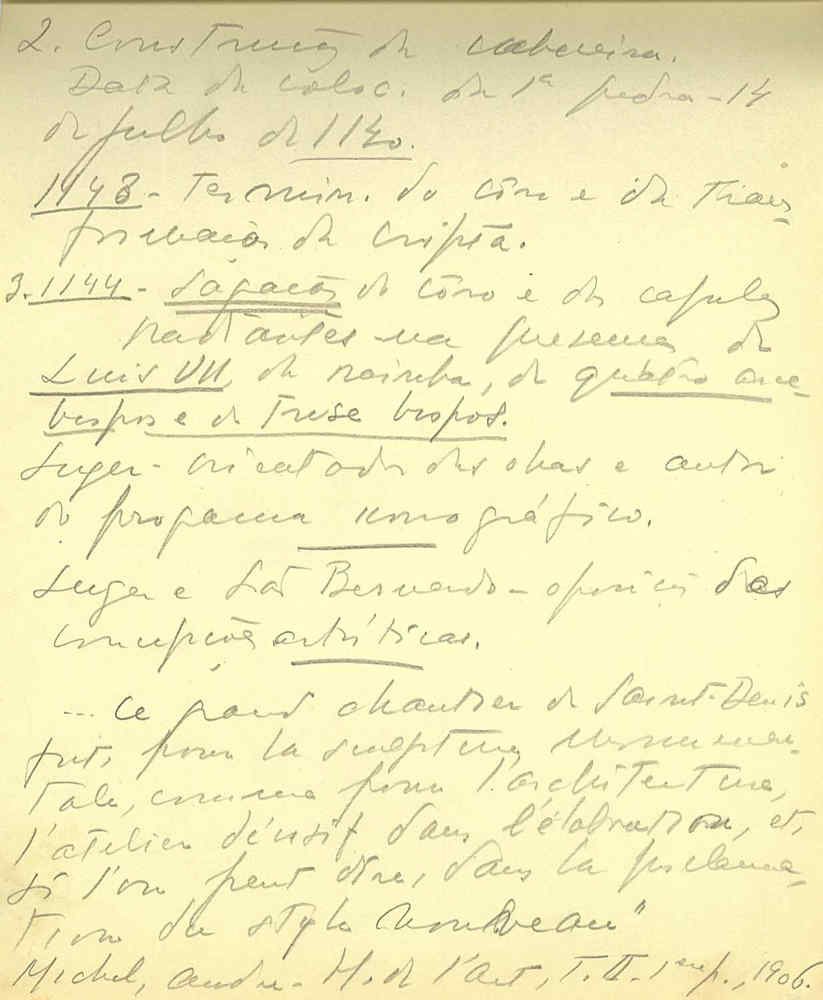 2. Construção da cabeceira.
Data da coloc. da 1ª pedra - 14
de julho de 1140.
1143 - Termin. do côro e da trans-
formação da cripta.
3. 1144 - Sagação do côro e das capelas
radiantes na presença de
Luis VII, da rainha, de quatro arce-
bispos e de trese bispos.
Suger - orientador das obras e autor
do programa iconográfico.
Suger e São Bernardo - oposição das
concepções artísticas.
... Ce grand chantier de Saint-Denis
fut, pour la sculpture monumen-
tale, comme pour l'architecture,
l'atelier décisif dans l'élaboration, et,
si l'on peut dire, dans la proclama-
tion du style nouveau"
Michel, André - H. de l'Art, T. II - 1ère p., 1906.